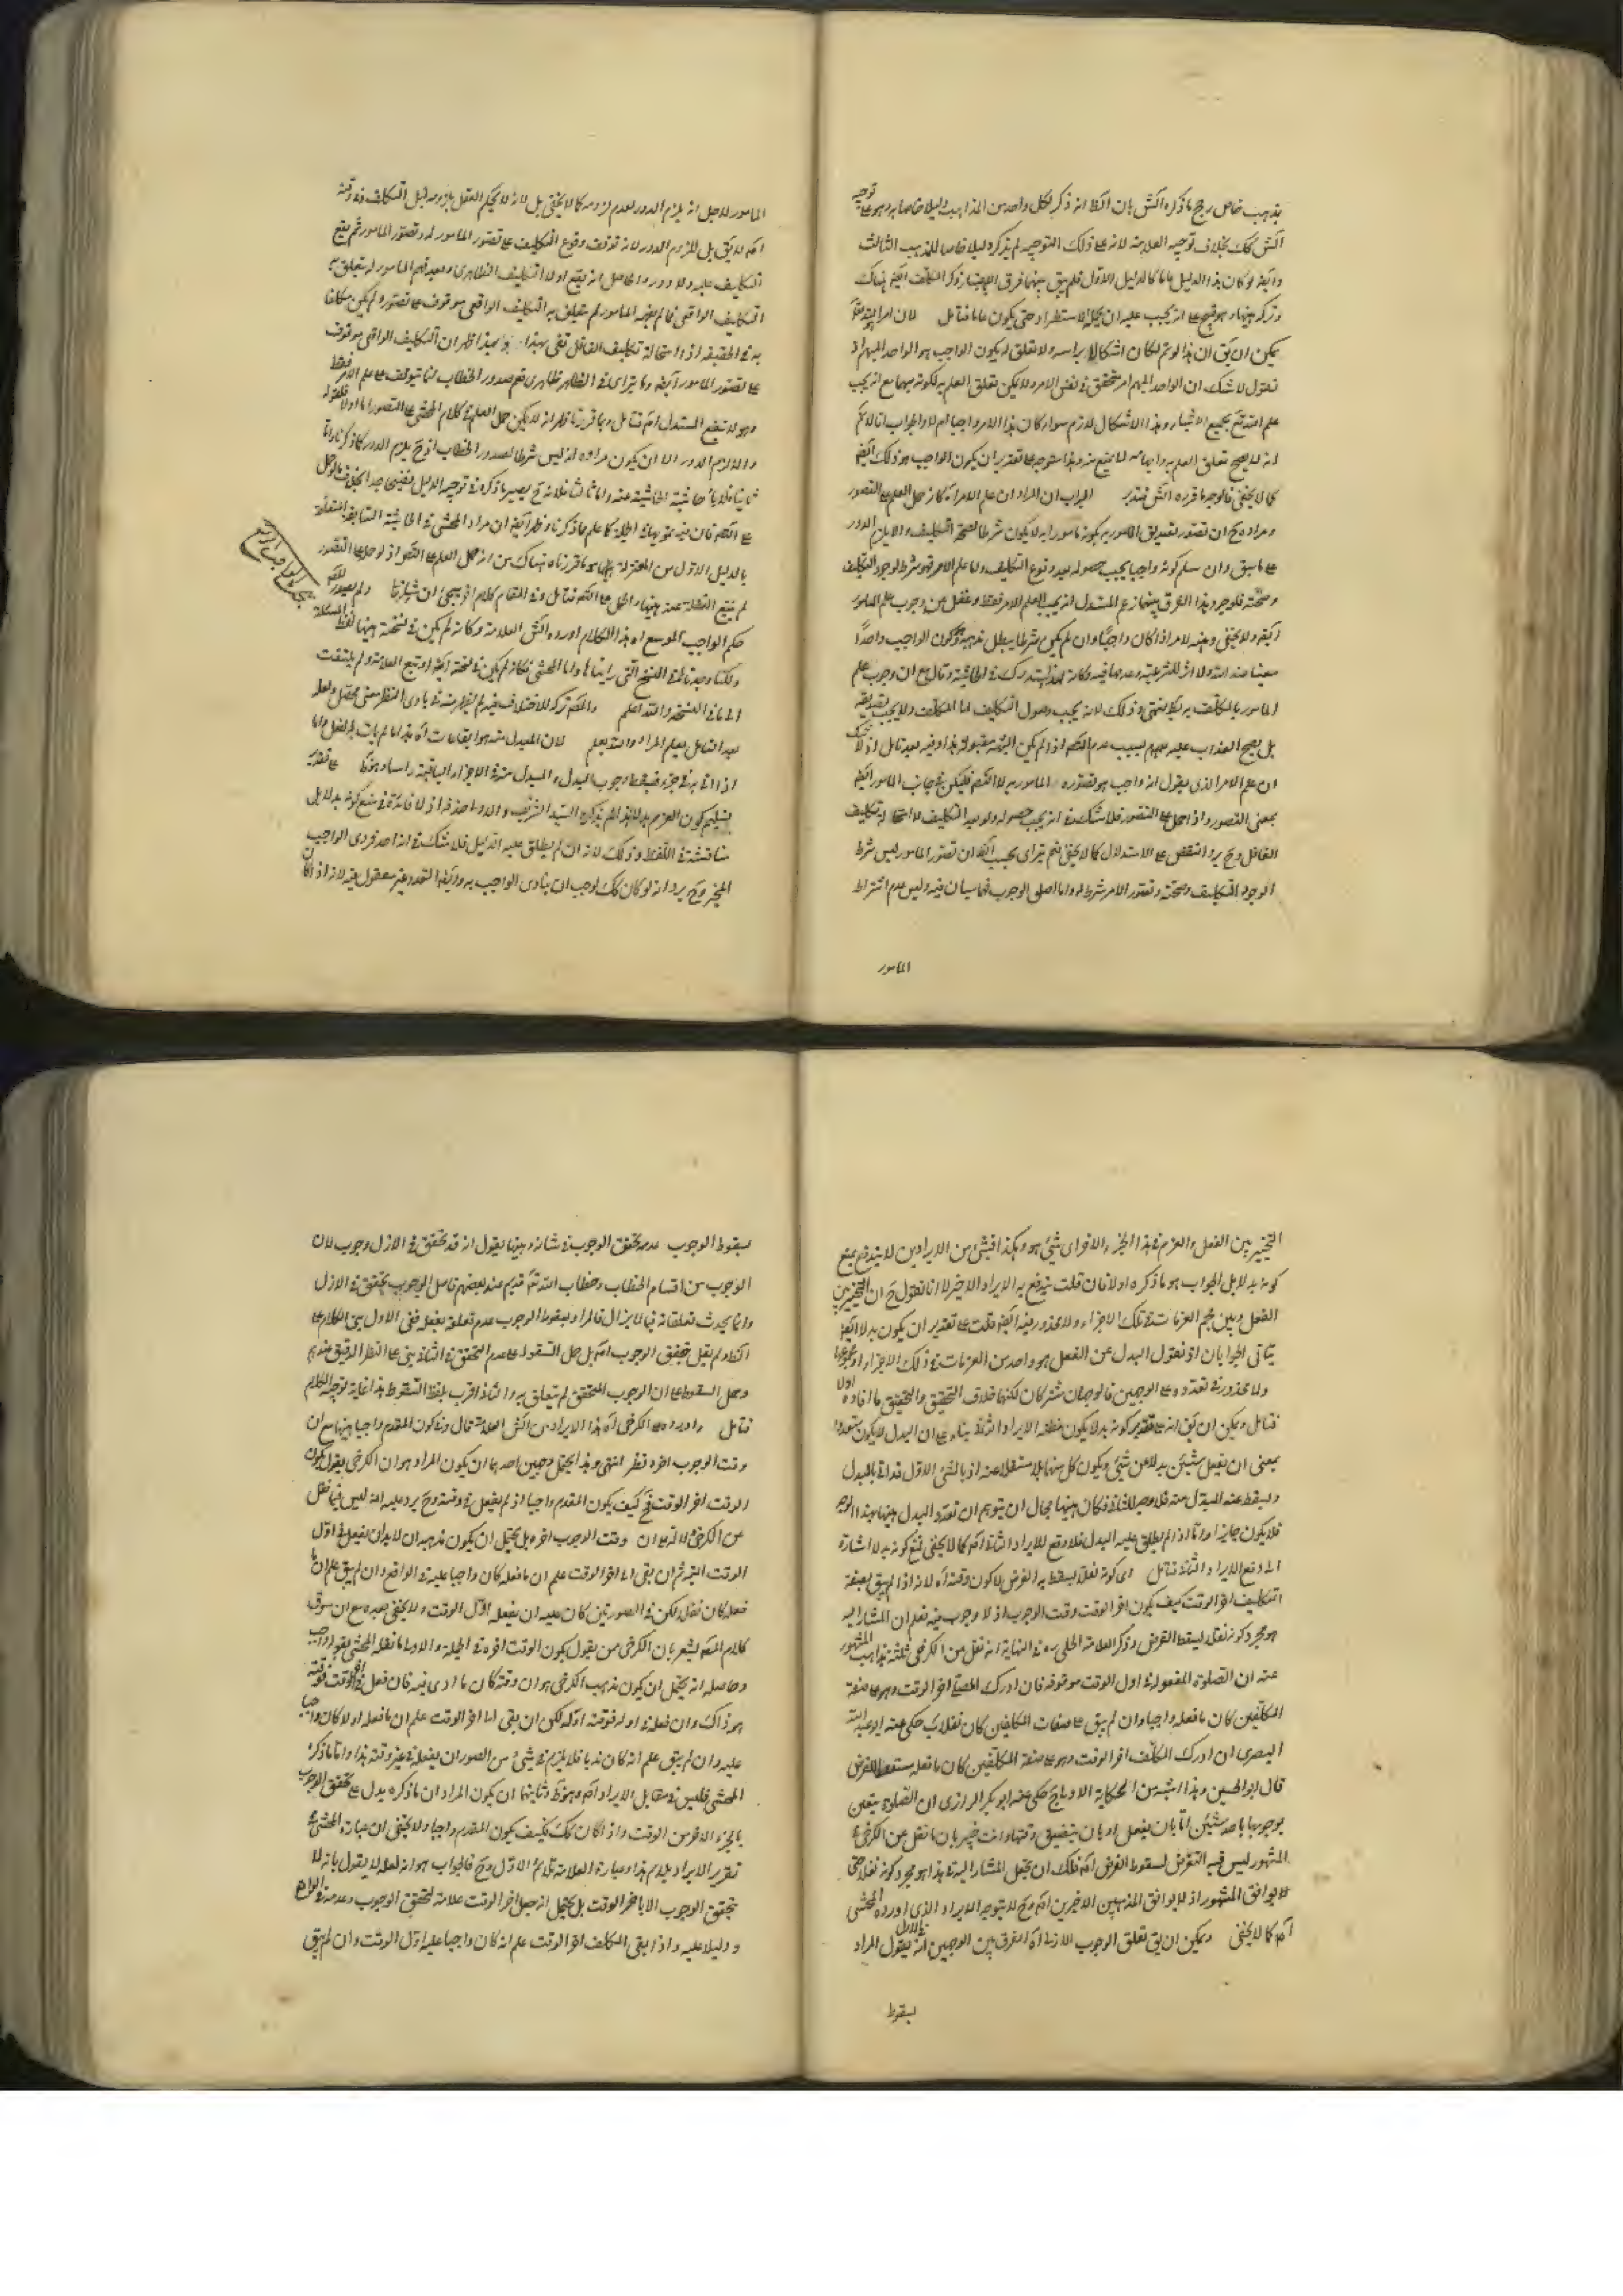 بمذهب خاص رجح ما ذكره الش بان الظ انه ذكر لكل واحد من المذاهب دليلا خاصا به وهو على توجيه
الش كك بخلاف توجيه العلامة لانه على ذلك التوجيه لم يذكر دليلا خاصا للمذهب الثالث
وايضا لو كان هذا الدليل عاما كالدليل الاول فلم يبق بينهما فرق
وتركه هيهنا وهو قبيح على انه يجب عليه ان يحمله الاستطراد حتى يكون عاما فتامل لان امرا
يمكن ان يق ان هذا لو تم لكان اشكالا براسه ولا تعلق له بكون الواجب هو الواحد المبهم اذ
نقول لا شك ان الواحد المبهم امر متحقق في نفس الامر ولا يمكن تعلق العلم به لكونه مبهما مع انه يجب
علم الله تع بجميع الاشياء وهذا الاشكال لازم سواء كان هذا الامر واجبا ام لا والجواب انا لا نم
انه لا يصح تعلق العلم به وهذا متوجه على تقدير ان يكون الواجب هو ذلك ايضا
كما لا يخفى فالوجه ما قرره الش فتدبر الجواب ان المراد ان علم الامر اه كانه حمل العلم على التصور
ومراده ح ان تصور تصديق المامور به بكونه مامورا به لا يكون شرطا لصحة التكليف والا يلزم الدور
على ما سبق وان سلم كونه واجبا يجب حصوله بعد وقوع التكليف واما علم الامر فهو شرط لوجود التكليف
وصحته فلوجود هذا الفرق بينهما زعم المستدل انه يجب العلم الامر فقط وغفل عن وجوب علم المامور
ايضا ولا يخفى وهنه لانه اذا كان واجبا وان لم يكن شرطا يبطل مذهبه وكون الواجب واحدا
معينا عند الله ولا اثر للشرعية وعدمها فيه وكانه لهذا استدرك في الحاشية وقال مع ان وجوب علم
المامور بالمكلف به انتهى وذلك لانه يجب وصول التكليف الى المكلف ولا يجب تصديقه
بل يصح العذاب عليه بسبب عدم العلم اذا لم يكن الشبهة مقبولة هذا وفيه بعد تامل اذ لا شك
ان علم الامر الذي يقول انه واجب هو تصوره المامور به لا العلم فليكن في جانب المامور ايضا
بمعنى التصور واذا حمل على التصور فلا شك في انه يجب حصوله ولو بعد التكليف لاستحالة تكليف
الغافل وح يرد النقض على الاستدلال كما لا يخفى نعم يتراى بحسب الظ ان تصور المامور ليس شرط
الوجود التكليف وصحته وتصور الامر شرط له واما اصل الوجوب فهما سيان فيه وليس عدم اشتراط
المامور
المامور لاجل انه يلزم الدور لعدم لزومه كما لا يخفى بل لانه لا يحكم العقل بلزومه قبل التكليف
لا يق بل للزوم الدور لانه توقف وقوع التكليف على تصور المامور له وتصور المامور ثم يقع
التكليف عليه ولا دور والحاصل انه يقع اولا التكليف الظاهري وبعد فهم المامور له يتعلق به
التكليف الواقعي فما لم يفهم المامور لم يتعلق به التكليف الواقعي موقوف على تصوره ولم يكن مكلفا
به في الحقيقة اذ استحالة تكليف الغافل تقي بهذا وبهذا ظهر ان التكليف الواقعي موقوف
على تصور المامور ايضا وما يتراى في الظاهر ظاهري نعم صدور الخطاب انما يتوقف على علم الامر فقط
وهو لا ينفع المستدل اه فتامل وبما قررنا ظهر انه لا يمكن حمل العلم في كلام المحشي على التصور اما اولا
والا لزم الدور الا ان يكون مراده انه ليس شرطا لصدور الخطاب اذ ح يلزم الدور كما ذكرنا واما
ثانيا فلاباء حاشية الحاشية عنه واما ثالثا فلانه ح يصير ما ذكره في توجيه الدليل
كما علم مما ذكرنا وظهر ايضا ان مراد المحشي في الحاشية السابقة المتعلقة
بالدليل الاول من المعتزلة ايضا هو ما قررناه هناك من انه حمل العلم على العلم اذ لو حمل على التصور
لم تقع الغفلة عنه هيهنا والحمل على العلم فتامل وفي المقام كلام اذ يجيئ ان شاء الله
حكم الواجب الموسع اه هذا الكلام اورده الش العلامة وكانه لم يكن في نسخة هيهنا لفظ المسئلة
ولكنا وجدناها في النسخ التي رايناها واما المحشي فكانه لم يكن في نسخته ايضا او تبع العلامة ولم يلتفت
الى ما في النسخة والله اعلم
بعد التامل يعلم المراد والله يعلم لان المبدل منه هو ايقاعات اه
اذا اتى به في جزء فيسقط وجوب البدل والمبدل منه في الاجزاء الباقية
تسليم كون العزم بدلا السيد الشريف
مناقشة في اللفظ وذلك لانه ان لم يطلق عليه البدل فلا شك في انه احد فردي الواجب
المخير وح يرد انه لو كان كك لوجب ان يتادى الواجب به وايضا التعدد غير معقول فيه لانه اذا كان
يجئ الواجب الموسع
التخيير بين الفعل والعزم في هذا الجزء والاخر اي شيئ هو وهكذا فشيئ من الايرادين لا يندفع بمنع
كونه بدلا بل الجواب هو ما ذكره اولا فان قلت يندفع به الايراد الاخير لانا نقول ح ان التخيير بين
الفعل وبين جميع العزمات في تلك الاجزاء ولا محذور فيه ايضا قلت على تقدير ان يكون بدلا ايضا
يتاتى الجوابان اذ نقول البدل عن الفعل هو واحد من العزمات في ذلك الاجزاء او مجموعها
ولا محذور في تعدده على الوجهين فالوجهان مشتركان لكنهما خلاف التحقيق والتحقيق ما افاده اولا
فتامل ويمكن ان يق انه على تقدير كونه بدلا يكون منظنة الايراد الثاني بناء على ان البدل لا يكون متعددا
بمعنى ان يفعل شيئين بدلا عن شيئ ويكون كل منهما بدلا مستقلا عنه اذ بالشيئ الاول قد اتى بالبدل
وليسقط عنه المبدل منه فلا وجه للثاني فكان هيهنا مجال ان يتوهم ان تعدد البدل هيهنا بهذا الوجه
فلا يكون جايزا واما اذا لم يطلق عليه البدل فلا وقع للايراد الثاني اه كما لا يخفى فمنع كونه بدلا اشارة
الى دفع الايراد الثاني فتامل اي كونه نفلا يسقط به الفرض لا كون وقته اه لانه اذا لم يبق بصفة
التكليف اخر الوقت كيف يكون اخر الوقت وقت الوجوب اذ لا وجوب فيه فعلم ان المشار اليه
هو مجرد كونه نفلا يسقط الفرض وذكر العلامة الحلي ره في النهاية انه نقل من الكرخي ثلثة مذاهب المشهور
عنه ان الصلوة المفعولة في اول الوقت موقوفة فان ادرك المصلي اخر الوقت وهو على صفة
المكلفين كان ما فعله واجبا وان لم يبق على صفات المكلفين كان نفلا ب حكى عنه ابو عبد الله
البصري ان ادرك المكلف اخر الوقت وهو على صفة المكلفين كان ما فعله مسقطا للفرض
قال ابو الحسين وهذا اشبه من الحكاية الاولى ج حكى عنه ابو بكر الرازي ان الصلوة يتعين
بوجوبها باحد شيئين اما بان يفعل او بان يتضيق وقتها وانت خبير بان ما نقل عن الكرخي
المشهور ليس فيه التعرض لسقوط الفرض اه فلك ان تجعل المشار اليه في هذا هو مجرد كونه نفلا حتى
لا يوافق المشهور اذ لا يوافق المذهبين الاخيرين اه وح لا يتوجه الايراد الذي اورده المحشي
اه كما لا يخفى ويمكن ان يق تعلق الوجوب الازلي اه الفرق بين الوجهين انه يقول المراد بالاول
بسقوط
بسقوط الوجوب عدم تحقق الوجوب في شانه وهيهنا يقول انه قد تحقق في الازل وجوب لان
الوجوب من اقسام الخطاب وخطاب الله تع قديم عند بعضهم فاصل الوجوب يتحقق في الازل
وانما يحدث تعلقاته فيما لا يزال فالمراد بسقوط الوجوب عدم تعلقه بفعله ففي الاول بني الكلام على
الظ ولم يقل بتحقق الوجوب اه بل حمل السقوط على عدم التحقق وفي الثاني بنى على النظر الدقيق عندهم
وحمل السقوط على ان الوجوب المتحقق لم يتعلق به والثاني اقرب بلفظ السقوط هذا غاية توجيه الكلام
فتامل واورد على الكرخي اه هذا الايراد من الش العلامة قال وفي كون المقدم واجبا هيهنا مع ان
وقت الوجوب اخره نظر انتهى وهذا يحتمل وجهين احدهما ان يكون المراد هو ان الكرخي يقول بكون
الوقت اخر الوقت فح كيف يكون المقدم واجبا اذ لم يفعل في وقته وح يرد عليه انه ليس فيما نقل
عن الكرخي وقت الوجوب اخره بل يحتمل ان يكون مذهبه ان لابد ان يفعل في اول
الوقت البتة ثم ان بقي الى اخر الوقت علم ان ما فعله كان واجبا عليه في الواقع وان لم يبق علم ان ما
فعله كان نفلا لكن في الصورتين كان عليه ان يفعله اول الوقت ولا يخفى بعده مع ان سوق
كلام المص يشعر بان الكرخي من يقول بكون الوقت اخره في الجملة والاولى ما نقله المحشي بقوله واجيب
وحاصله انه يحتمل ان يكون مذهب الكرخي هو ان وقته كان ما ادى فيه فان فعل في اخر الوقت فوقته
هو ذاك وان فعل في اوله فوقته اوله لكن ان بقي الى اخر الوقت علم ان ما فعله اولا كان واجبا
عليه وان لم يبق علم انه كان ندبا فلا يلزم في شيئ من الصور ان يفعل في غير وقته هذا واما ما ذكره
المحشي فليس في مقابل الايراد اه وهو ظ وثانيهما ان يكون المراد ان ما ذكره يدل على تحقق الوجوب
بالجزء الاخر من الوقت واذا كان كك فكيف يكون المقدم واجبا ولا يخفى ان عبارة المحشي في
تقرير الايراد يلايم هذا وعبارة العلامة تلائم الاول وح فالجواب هو انه لعله لا يقول بانه لا
يتحقق الوجوب الا باخر الوقت بل يحتمل انه جعل اخر الوقت علامة لتحقق الوجوب وعدمه في الواقع
ودليلا عليه واذا بقي المكلف اخر الوقت علم انه كان واجبا عليه اول الوقت وان لم يبق